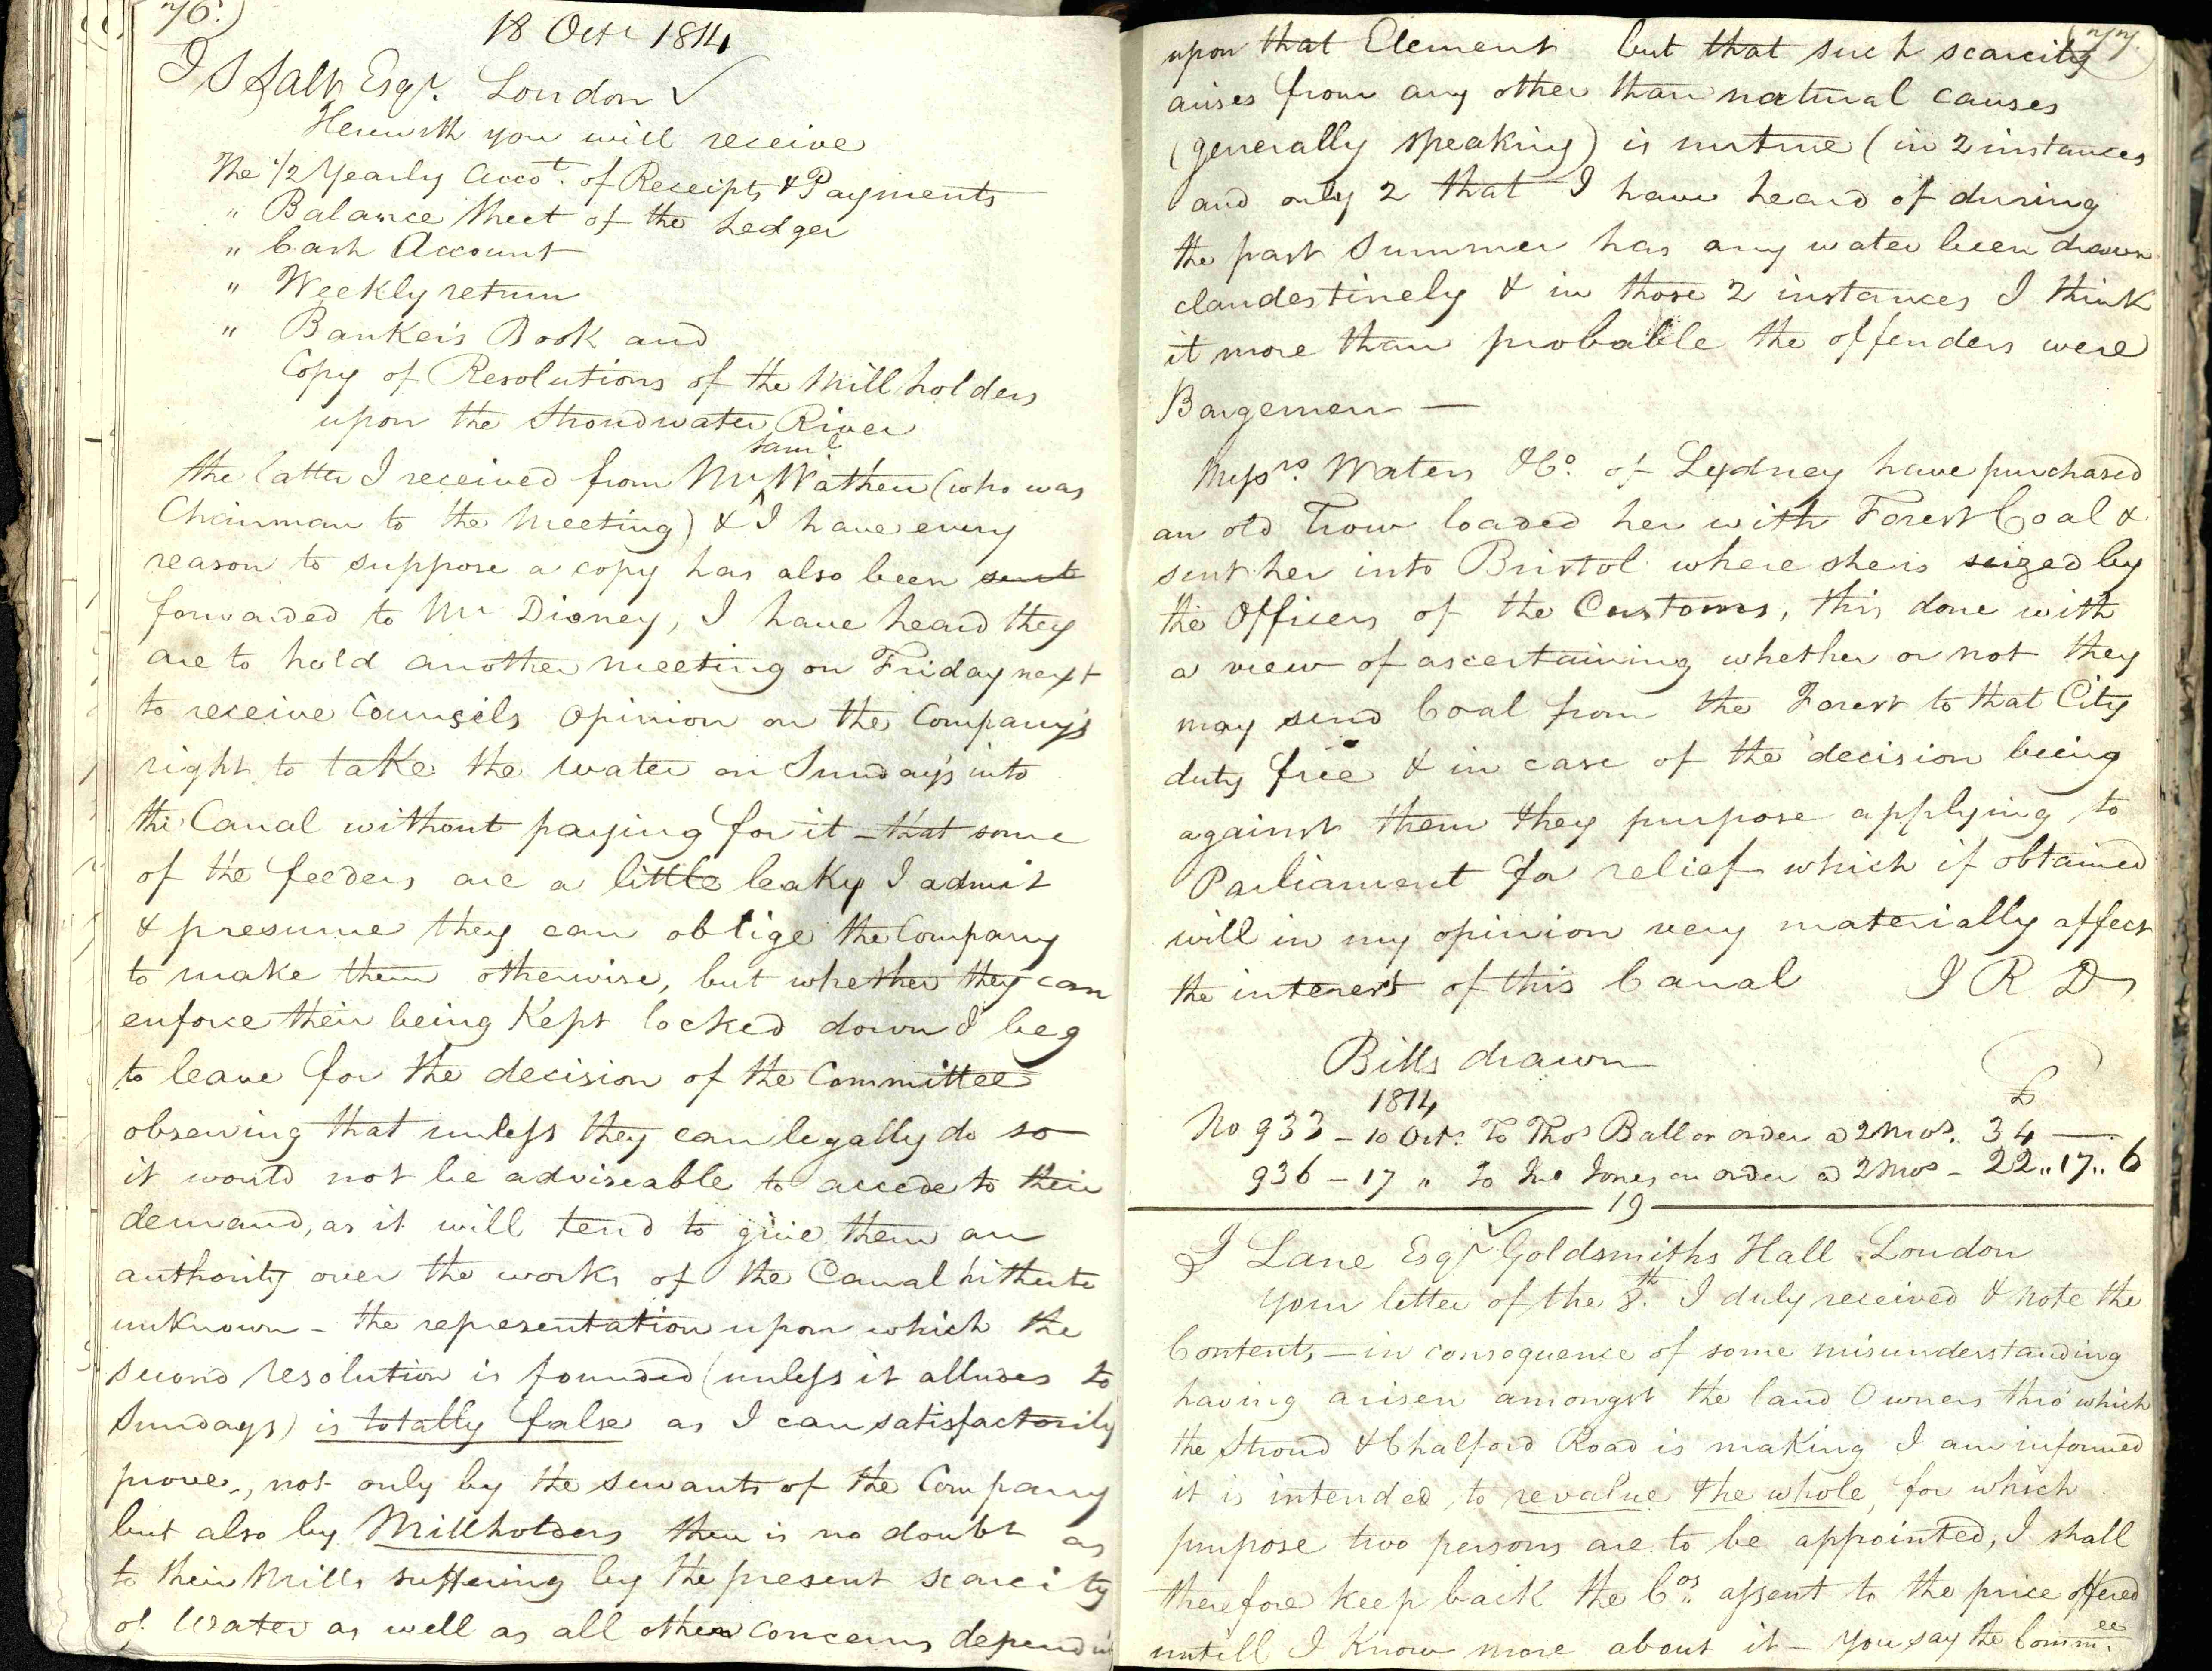 76.)
18 Octr 1814
I S Salt Esqr. London ✓
Herewith you will receive
The 1/2 Yearly Accot. of Receipts & Payments
" Balance Sheet of the Ledger
" Cash Account
" Weekly return
" Banker's Book and
Copy of Resolutions of the Mill holders
upon the Stroudwater River
the latter I received from Mr Saml Wathen (who was
Chairman to the Meeting) & I have every
reason to suppose a copy has also been sent
forwarded to Mr Disney, I have heard they
are to hold another meeting on Friday next
to receive Counsels Opinion on the Company's
right to take the water on Sunday's into
the Canal without paying for it - that some
of the feeders are a little leaky I admit
& presume they can oblige the Company
to make them otherwise, but whether they can
enforce their being Kept locked down I beg
to leave for the decision of the Committee
observing that unless they can legally do so
it would not be adviseable to accede to their
demand, as it will tend to give them an
authority over the works of the Canal hitherto
unknown - the representation upon which the
second resolution is founded (unless it alludes to
Sundays) is totally false as I can satisfactorily
prove, not only by the servants of the Company
but also by Millholders there is no doubt as
to their Mills suffering by the present scarcity
of Water as well as all other concerns depending
(77.
upon that Element but that such scarcity
arises from any other than natural causes
(generally speaking) is untrue (in 2 instances
and only 2 that I have heard of during
the past Summer has any water been drawn
clandestinely & in those 2 instances I think
it more than probable the offenders were
Bargemen —
Messrs. Waters & Co. of Lydney have purchased
an old Trow loaded her with Forest Coal &
sent her into Bristol where she is seized by
the Officers of the Customs, this done with
a view of ascertaining whether or not they
may send Coal from the Forest to that City
duty free & in case of the decision being
against them they purpose applying to
Parliament for relief which if obtained
will in my opinion very materially affect
the interest of this Canal I R D
Bills drawn
1814 £
No 933 - 10 Octr. To Thos Ball or order a 2 Mos. 34 —
936 - 17 " To Jno Jones or order a 2 Mos - 22 .. 17 .. 6
19
I Lane Esqr ✓ Goldsmiths Hall London
Your letter of the 8th. I duly received & note the
Contents, — in consequence of some misunderstanding
having arisen amongst the land Owners thro' which
the Stroud & Chalford Road is making I am informed
it is intended to revalue the whole, for which
purpose two persons are to be appointed, I shall
therefore keep back the Cos. assent to the price offered
untill I Know more about it - You say the Commee.